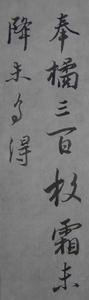 奉橘三百枚霜未
降未可多得